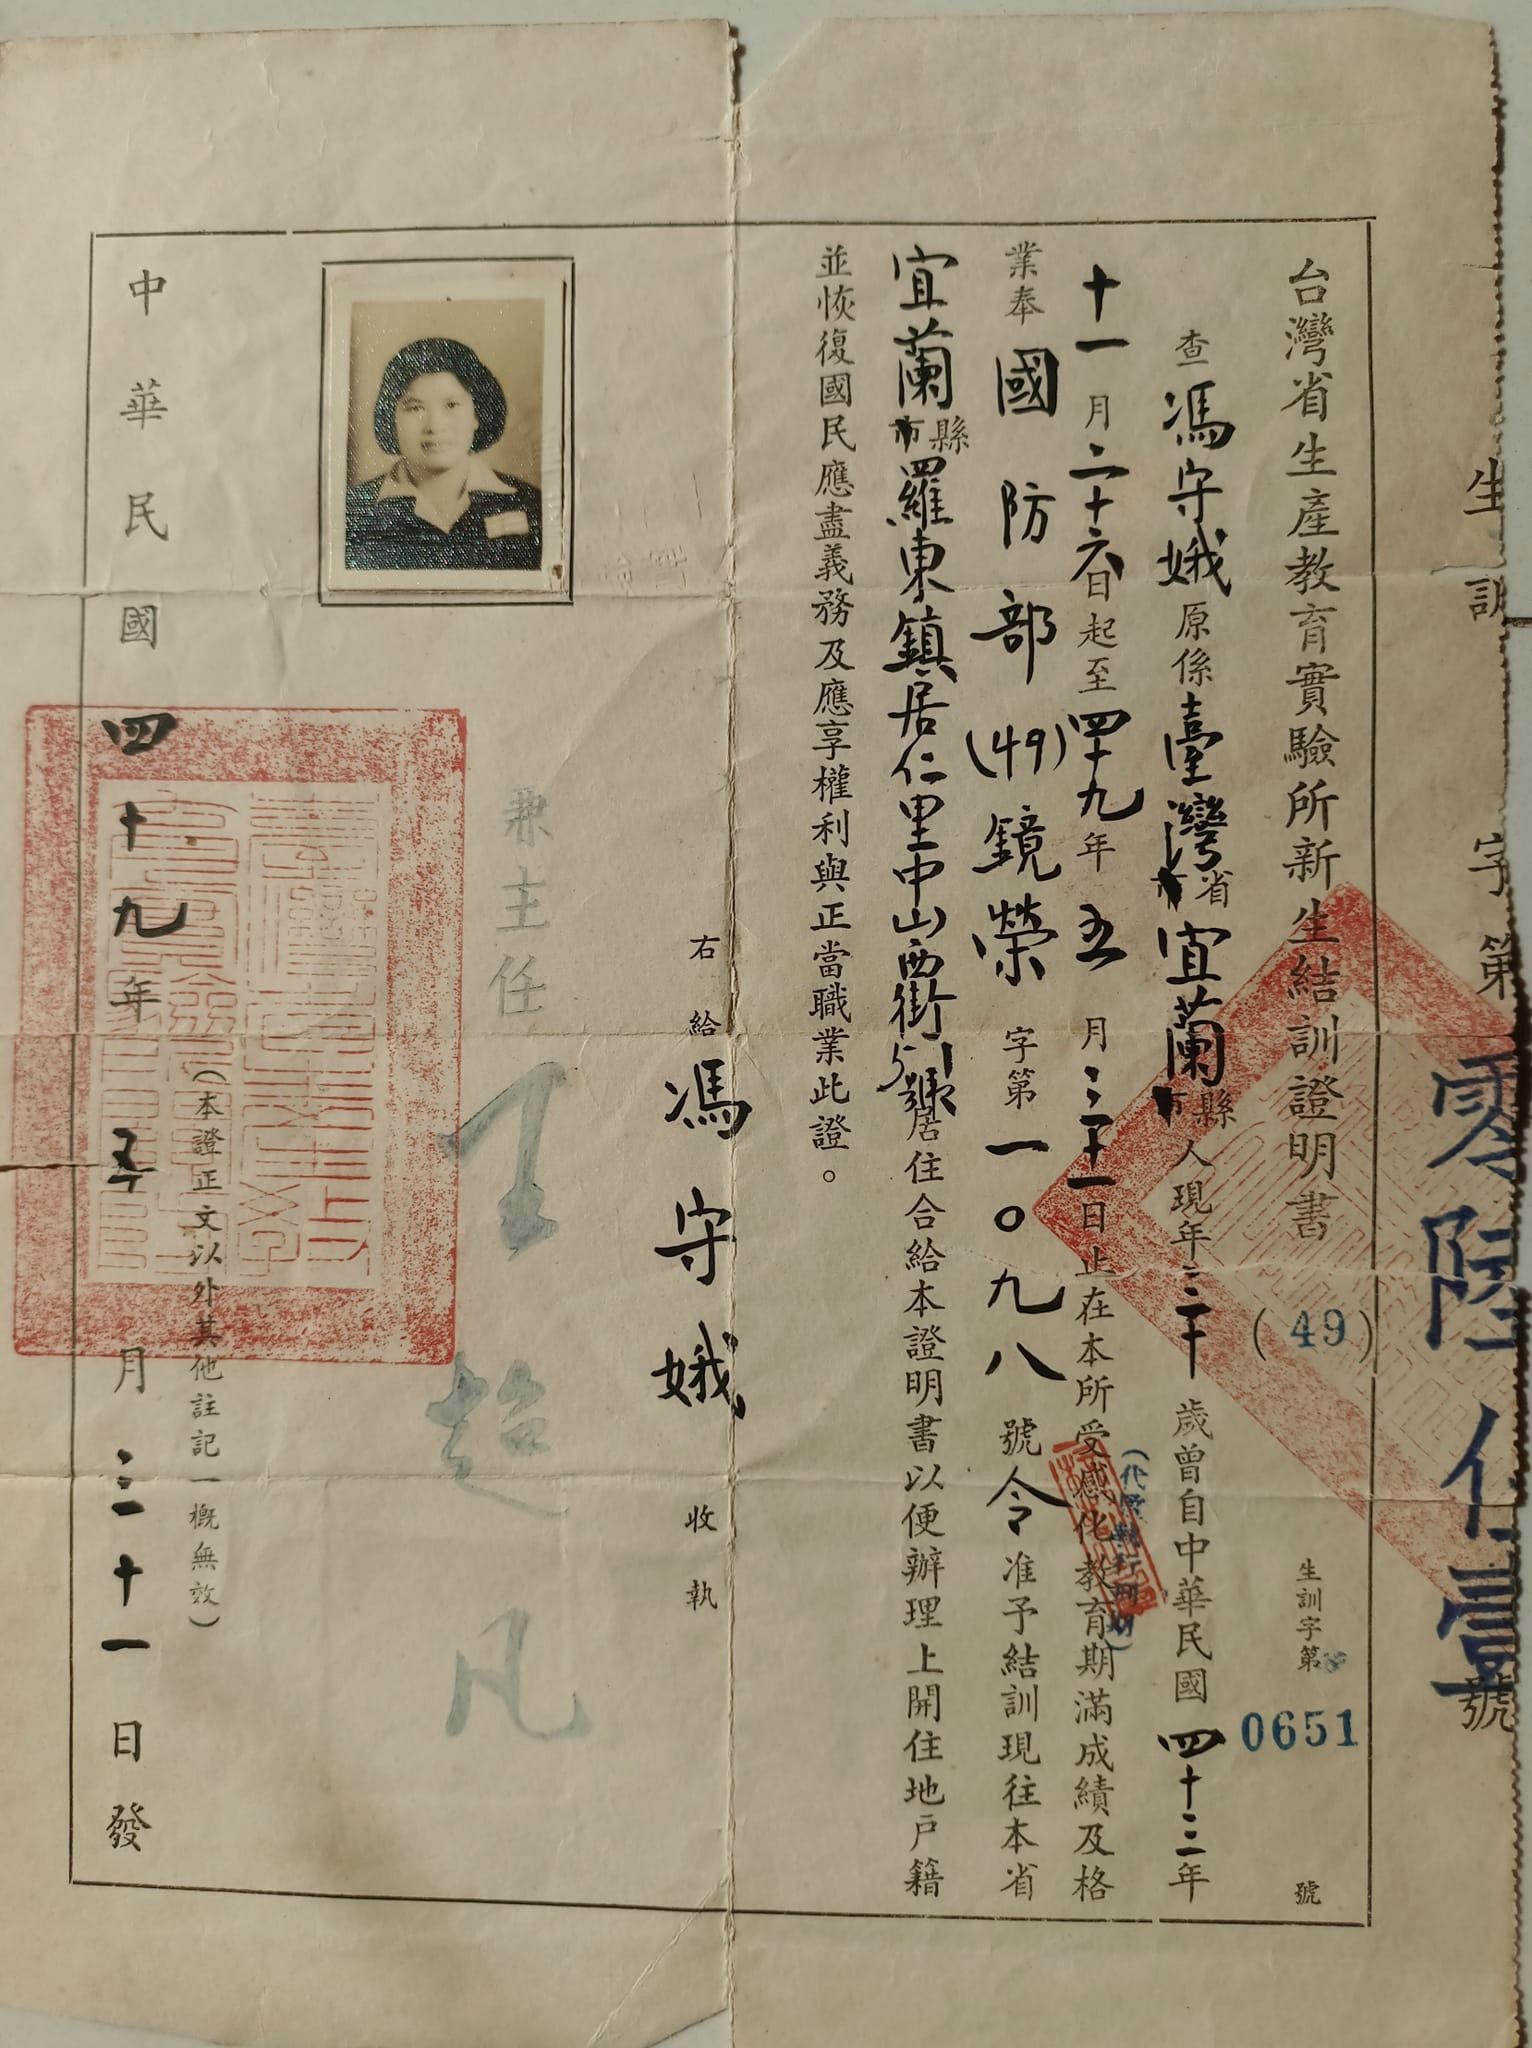 生訓字第零陸伍壹號
台灣省生產教育實驗所新生結訓證明書(49)生訓字第0651號
查馮守娥原係臺灣省市宜蘭縣市人現年三十歲曾自中華民國四十三年
十一月二十六日起至四十九年五月三十一日止在本所受感化教育期滿成績及格
業奉國防部(49)鏡榮字第一〇九八號令准予結訓現往本省
宜蘭縣市羅東鎮居仁里中山西街號居住合給本證明書以便辦理上開住地戶籍
並恢復國民應盡義務及應享權利與正當職業此證。
右給馮守娥收執
兼主任王超凡
(本證正文以外其他註記一概無效)
中華民國四十九年五月三十一日發